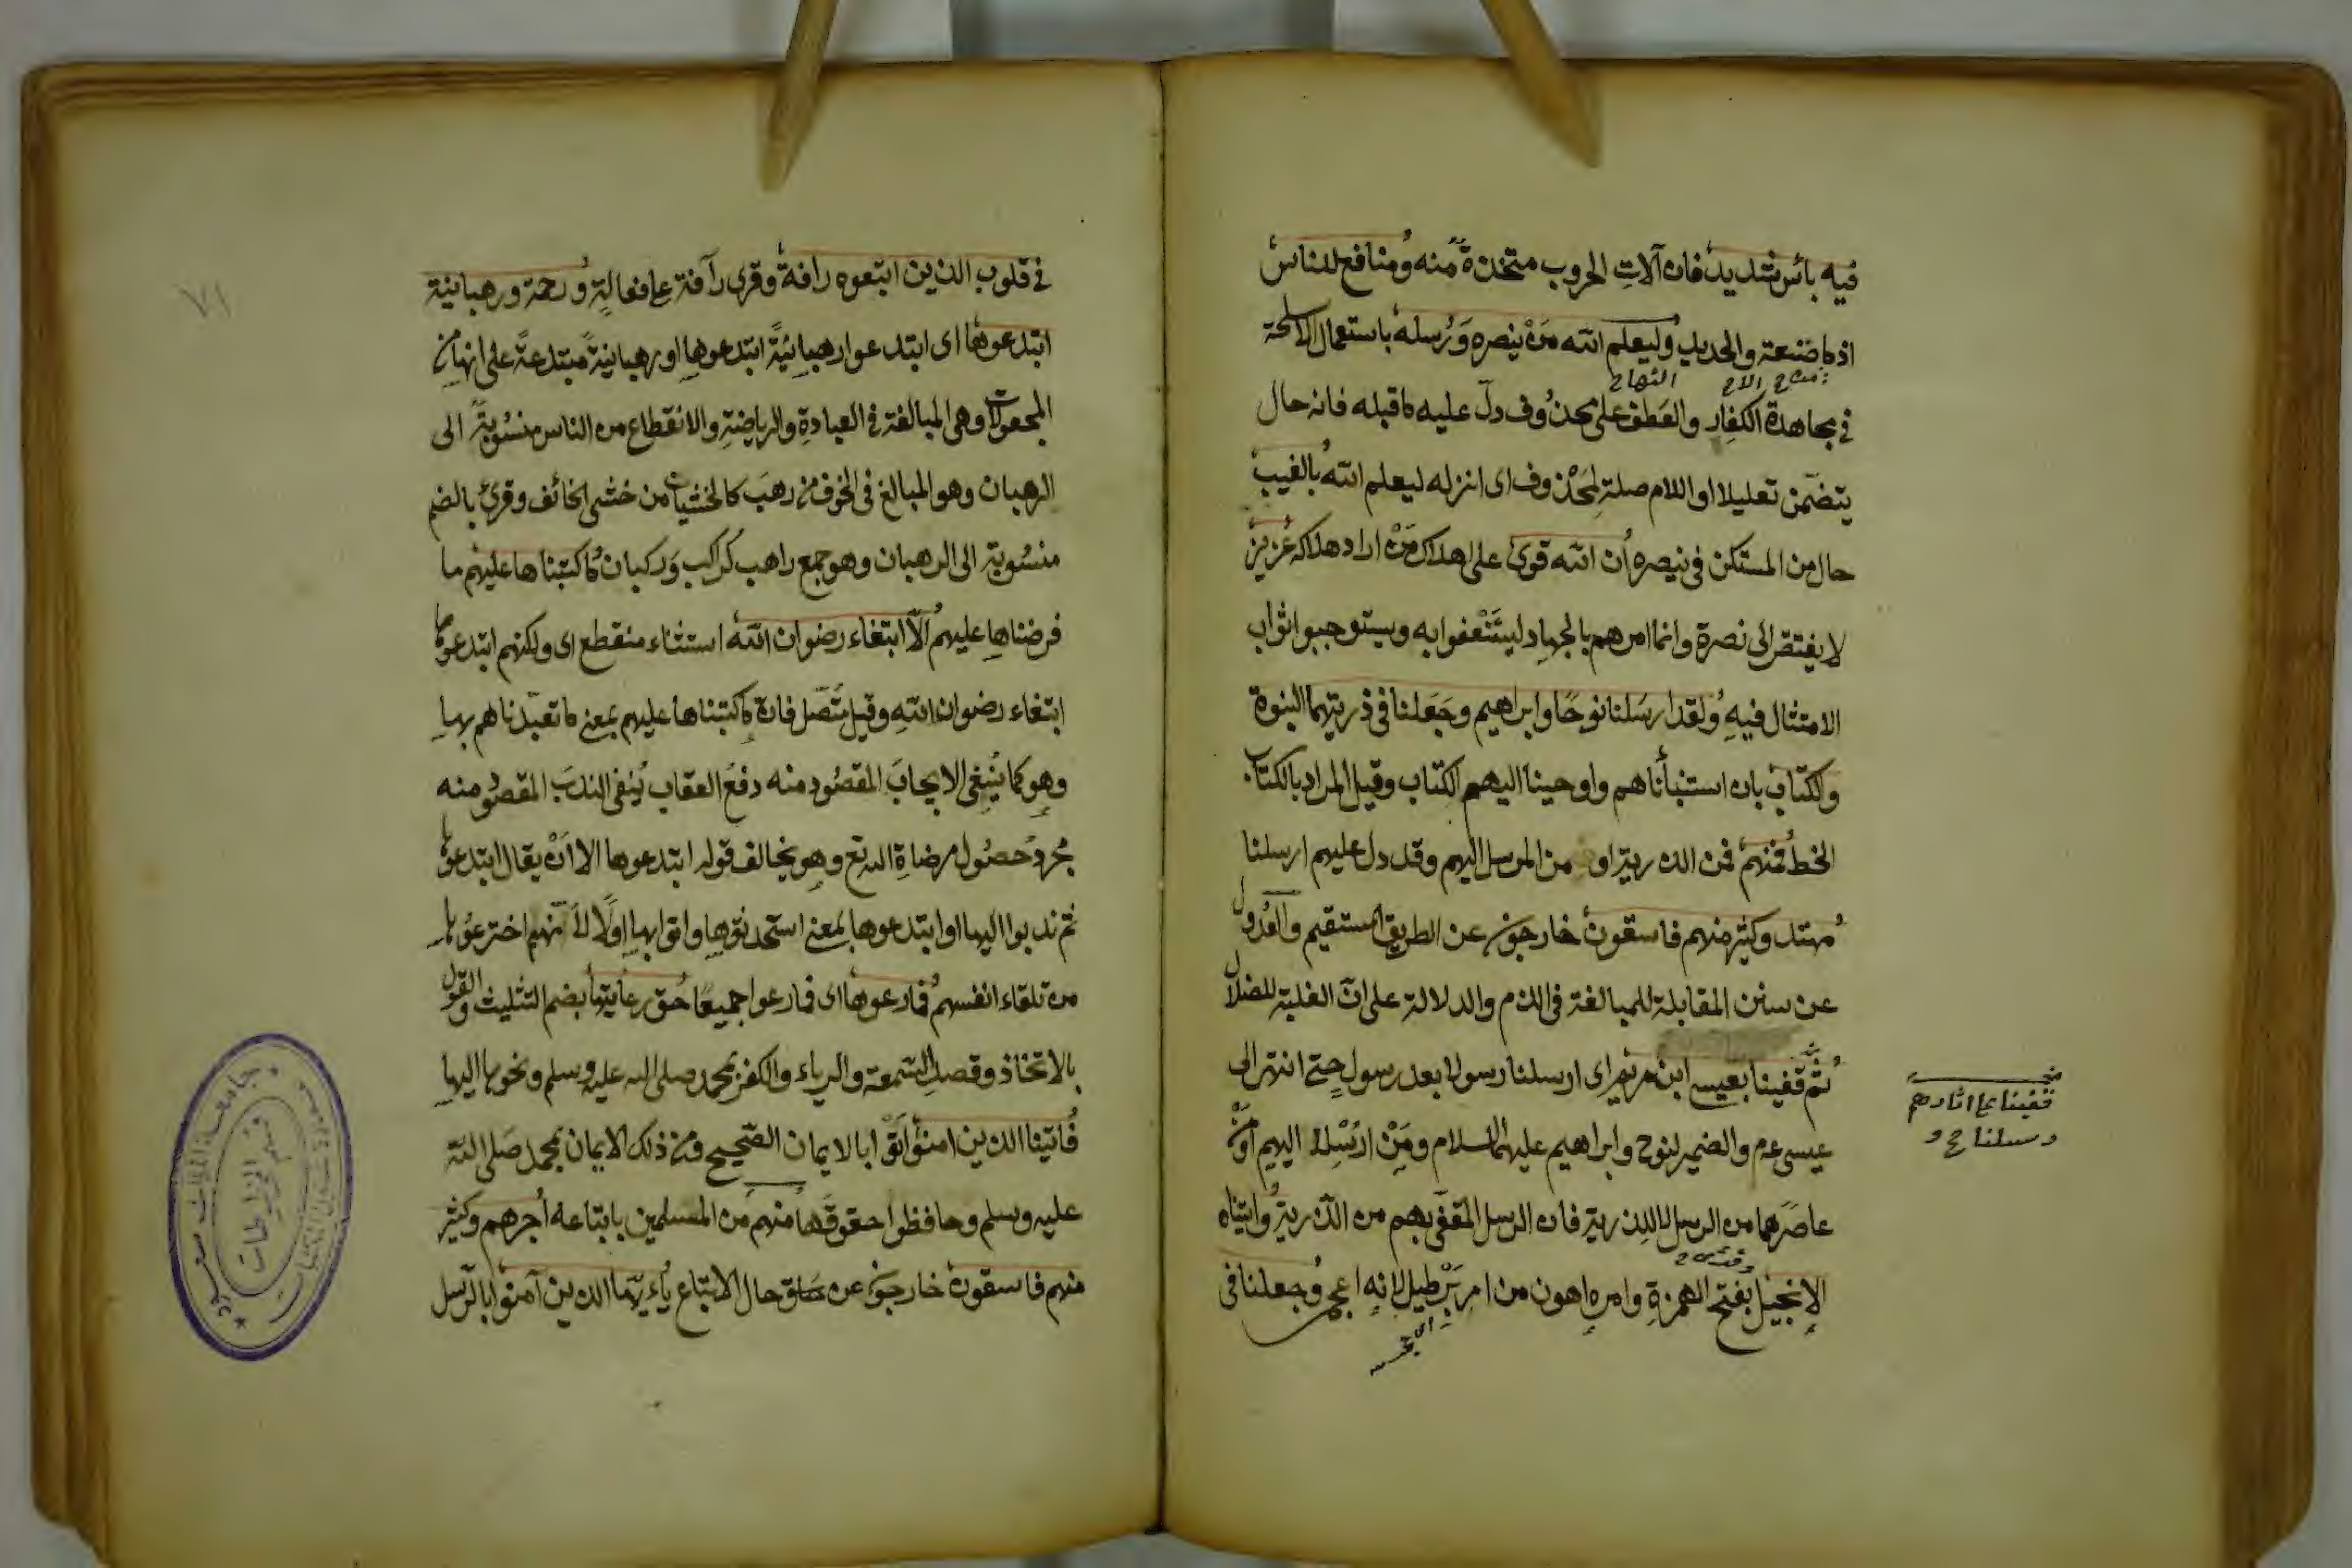 فيه بأس شديد فان آلات الحروب متخذة منه ومنافع للناس
اذ ما صنعة والحديد وليعلم الله من ينصره ورسله باستعمال الاسلحة
في مجاهدة الكفار والعطف على محذوف دل عليه ما قبله فانه حال
يتضمن تعليلا او اللام صلة لمحذوف اى انزله ليعلم الله بالغيب
حال من المستكن في ينصره ان الله قوى على اهلاك من اراد هلاكه عزيز
لا يفتقر الى نصرة وانما امرهم بالجهاد لينتفعوا به ويستوجبوا ثواب
الامتثال فيه ولقد ارسلنا نوحا وابراهيم وجعلنا في ذريتهما النبوة
والكتاب بان استنبأناهم واوحينا اليهم الكتاب وقيل المراد بالكتاب
الخط فمنهم فمن الذرية او من المرسل اليهم وقد دل عليهم ارسلنا
مهتد وكثير منهم فاسقون خارجون عن الطريق المستقيم والعدول
عن سنن المقابلة للمبالغة في الذم والدلالة على ان الغلبة للضلال
ثم قفينا بعيسى ابن مريم اى ارسلنا رسولا بعد رسول حتى انتهى الى
عيسى عم والضمير لنوح وابراهيم عليهما السلام ومن ارسلا اليهم او من
عاصرهما من الرسل لا للذرية فان الرسل المقفى بهم من الذرية واتيناه
الإنجيل بفتح الهمزة وامره اهون من امر برطيل لانه اعجمى وجعلنا في
قفينا على اثارهم
رسلنا
في قلوب الذين اتبعوه رافة وقرى رآفة على فعالة ورحمة ورهبانية
ابتدعوها اى ابتدعوا رهبانية ابتدعوها او رهبانية مبتدعة على انها من
المجعولات وهى المبالغة في العبادة والرياضة والانقطاع من الناس منسوبة الى
الرهبان وهو المبالغ في الخوف من رهب كالخشيان من خشى الخائف وقرئ بالضم
منسوبة الى الرهبان وهو جمع راهب كراكب وركبان ما كتبناها عليهم ما
فرضناها عليهم الا ابتغاء رضوان الله استثناء منقطع اى ولكنهم ابتدعوها
ابتغاء رضوان الله وقيل متصل فان ما كتبناها عليهم بمعنى ما تعبدناهم بها
وهو كما ينفى الايجاب المقصود منه دفع العقاب ينفى الندب المقصود منه
مجرد حصول مرضاة الله تع وهو يخالف قوله ابتدعوها الا ان يقال ابتدعوها
ثم ندبوا اليها او ابتدعوها بمعنى استحدثوها واتوا بها اولا لا انهم اخترعوها
من تلقاء انفسهم فما رعوها اى فما رعوا جميعا حق رعايتها بضم التثليث والقول
بالاتخاذ وقصد السمعة والرياء والكفر بمحمد صلى الله عليه وسلم ونحوها اليها
فاتينا الذين امنوا اتوا بالايمان الصحيح ومن ذلك الايمان بمحمد صلى الله
عليه وسلم وحافظوا حقوقها منهم من المسلمين باتباعه اجرهم وكثير
منهم فاسقون خارجون عن حال الاتباع يا ءيها الذين آمنوا بالرسل
٧١